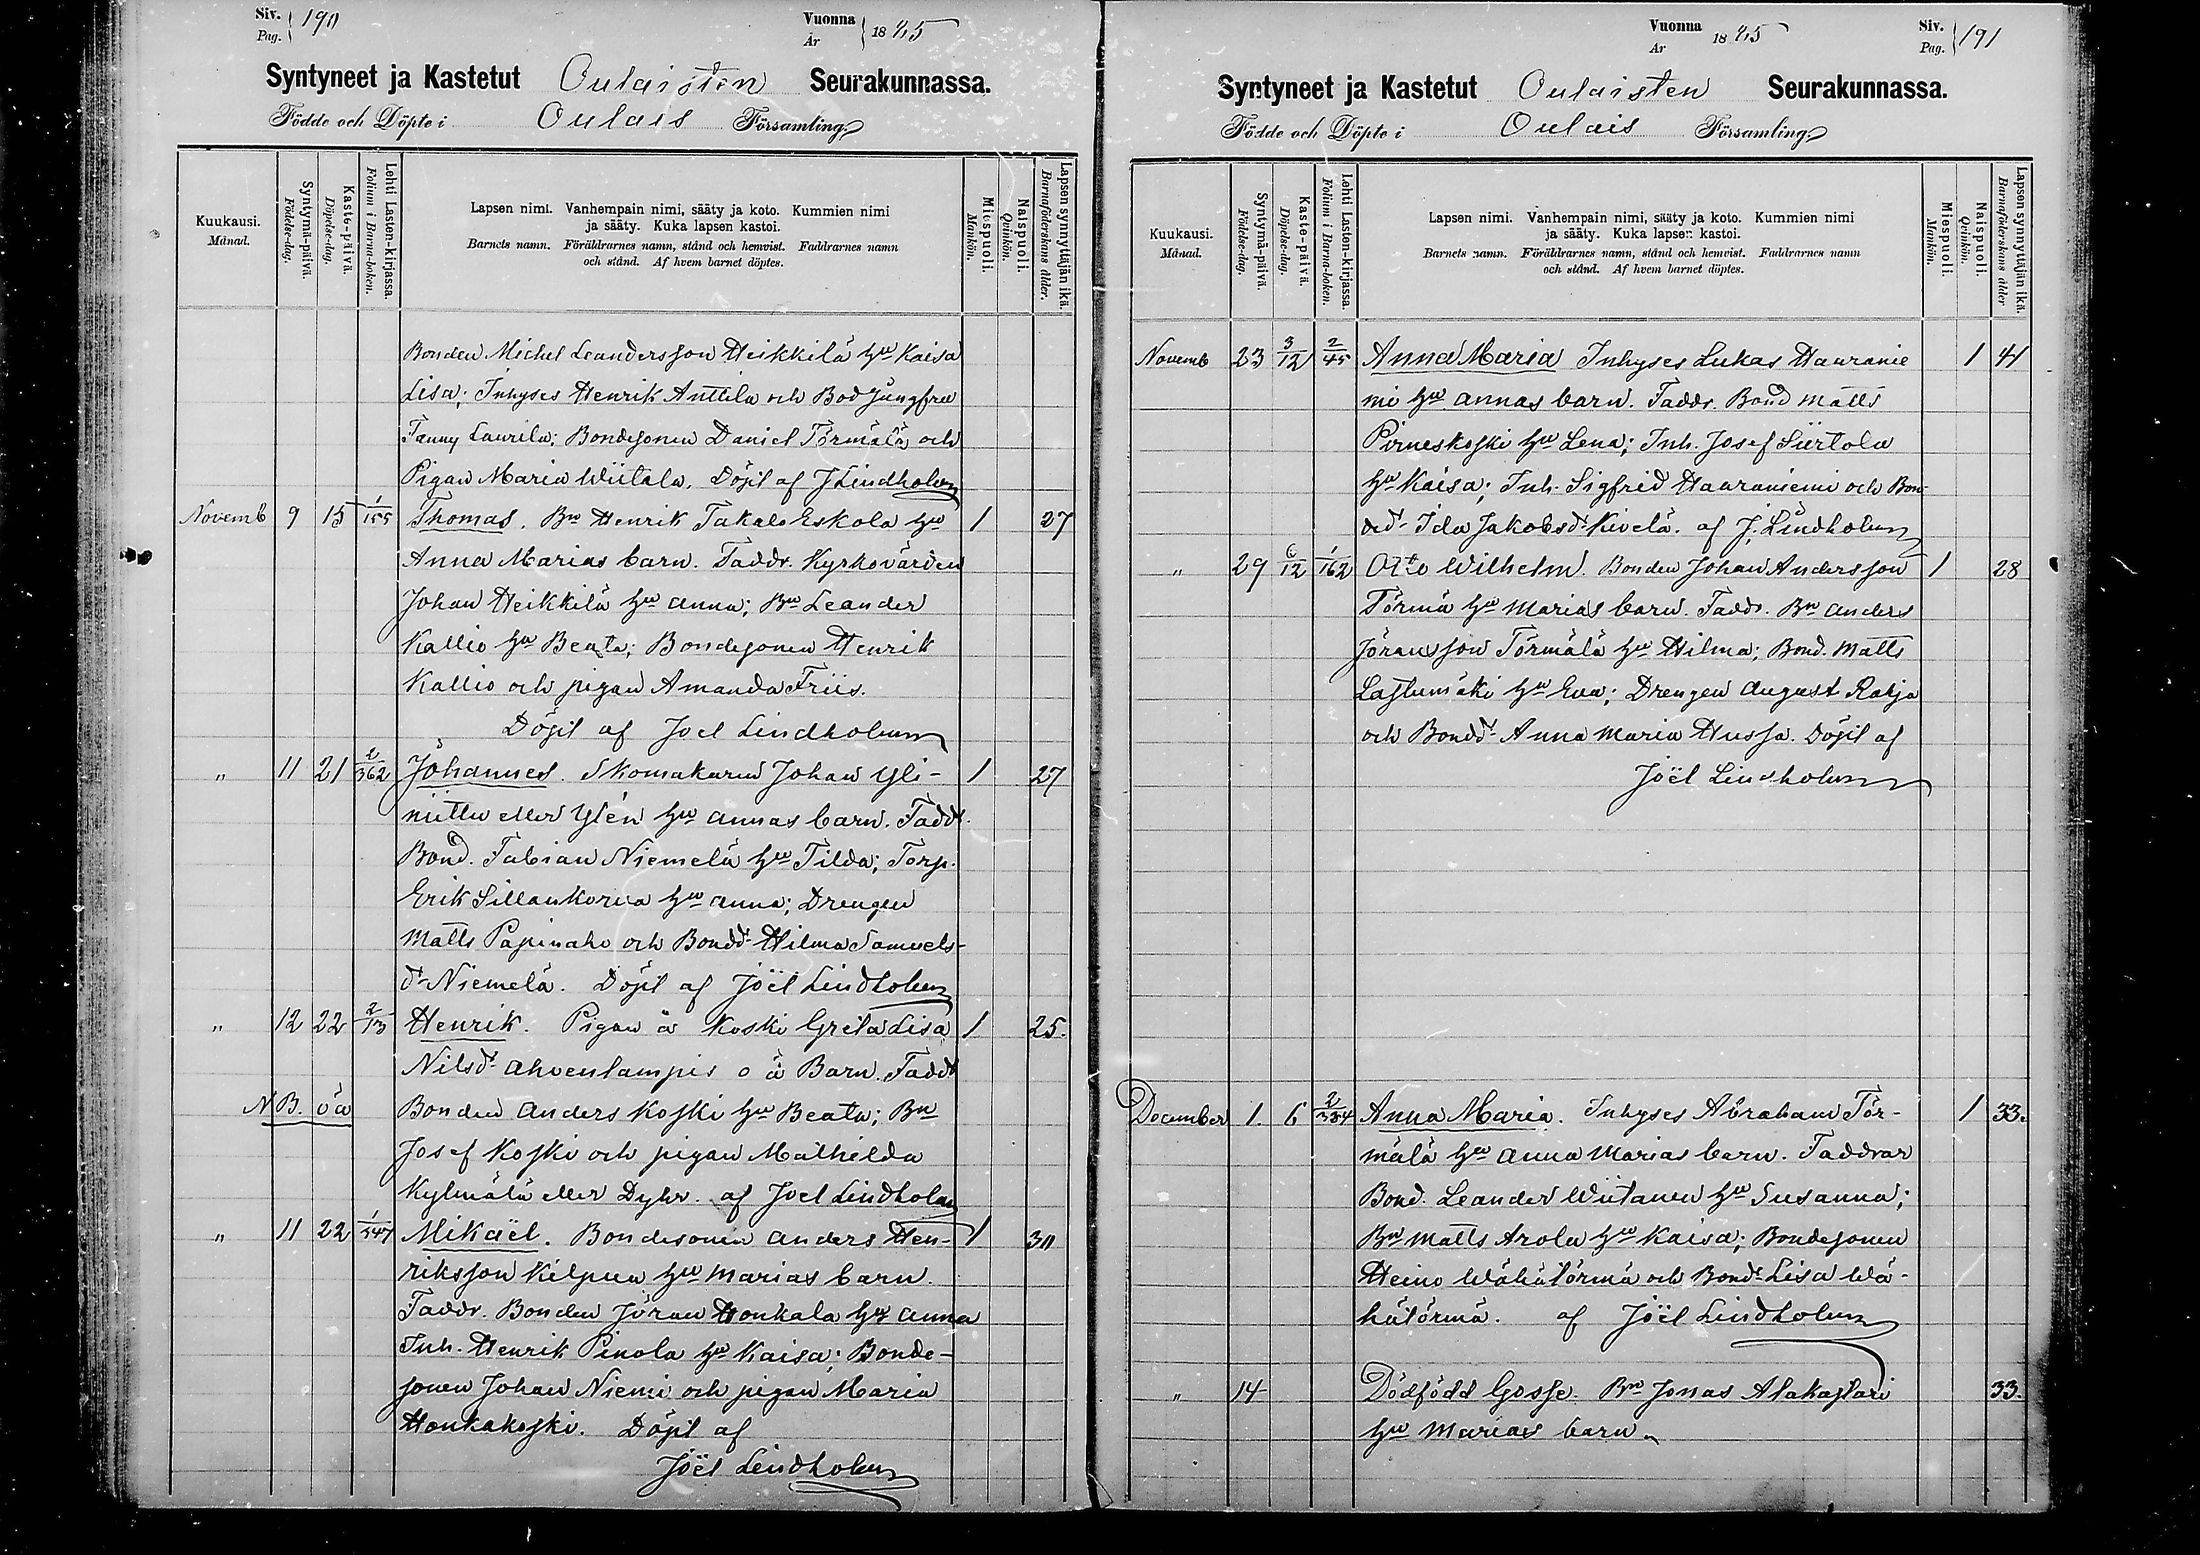 Siv. Pag. 190
Vuonna År 1885
Syntyneet ja Kastetut Oulaisten Seurakunnassa.
Födde och Döpte i Oulais Församling
Kuukausi. Månad.
Syntymä-päivä. Födelse-dag.
Kaste-päivä. Döpelse-dag.
Lehti Lasten-kirjassa. Folium i Barna-boken.
Lapsen nimi. Vanhempain nimi, sääty ja koto. Kummien nimi
ja sääty. Kuka lapsen kastoi.
Barnets namn. Föräldrarnes namn, stånd och hemvist. Faddrarnes namn
och stånd. Af hvem barnet döptes.
Miespuoli. Mankön.
Naispuoli. Qvinkön.
Lapsen synnyttäjän ikä. Barnaföderskans ålder.
Bonden Michel Leandersson Heikkilä hu Kaisa
Lisa; Inhyses Henrik Anttila och Bod Jungfru
Fanny Laurila; Bondesonen Daniel Törmälä och
Pigan Maria Wiitala. Döpt af J Lindholm
Novemb 9 15 1/155 Thomas. Bn Henrik Takalo Eskola hu 1 27
Anna Marias barn. Faddr. Kyrkovärden
Johan Heikkilä hu Anna; Bn Leander
Kallio hu Beata; Bondesonen Henrik
Kallio och pigan Amanda Friis.
Döpt af Joel Lindholm
" 11 21 2/362 Johannes. Skomakaren Johan Yli- 1 27
niittu eller Ylén hu Annas barn. Faddr.
Bond. Fabian Niemelä hu Tilda; Torp.
Erik Sillankorva hu Anna; Drengen
Matts Papinaho och Bondd. Hilma Samuels-
dr Niemelä. Döpt af Joël Lindholm
" 12 22 2/13 Henrik. Pigan å Koski Greta Lisa 1 25.
Nilsdr Ahvenlampis o ä Barn. Faddr
N B. oä Bonden Anders Koski hu Beata; Bn
Josef Koski och pigan Mathilda
Kylmälä eller Dyhr. af Joel Lindholm
" 11 22 1/347 Mikaël. Bondesonen Anders Hen- 1 30
riksson Kilpua hu Marias barn.
Faddr. Bonden Jöran Honkala hu Anna
Inh. Henrik Pinola hu Kaisa; Bonde-
sonen Johan Niemi och pigan Maria
Honkakoski. Döpt af
Joël Lindholm
Vuonna År 1885
Siv. Pag. 191
Syntyneet ja Kastetut Oulaisten Seurakunnassa.
Födde och Döpte i Oulais Församling
Kuukausi. Månad.
Syntymä-päivä. Födelse-dag.
Kaste-päivä. Döpelse-dag.
Lehti Lasten-kirjassa. Folium i Barna-boken.
Lapsen nimi. Vanhempain nimi, sääty ja koto. Kummien nimi
ja sääty. Kuka lapsen kastoi.
Barnets namn. Föräldrarnes namn, stånd och hemvist. Faddrarnes namn
och stånd. Af hvem barnet döptes.
Miespuoli. Mankön.
Naispuoli. Qvinkön.
Lapsen synnyttäjän ikä. Barnaföderskans ålder
Novemb 23 3/12 2/45 Anna Maria Inhyses Lukas Haaranie 1 41
mi hu Annas barn. Faddr. Bond Matts
Pirneskoski hu Lena; Inh. Josef Siirtola
hu Kaisa; Inh. Sigfrid Haaraniemi och Bon
dedr Ida Jakobsdr Kivelä. af J. Lindholm
" 29 6/12 1/162 Otto Wilhelm. Bonden Johan Andersson 1 28
Törmä hu Marias barn. Faddr. Bn Anders
Jöransson Törmälä hu Hilma; Bond. Matts
Lastumäki hu Eva; Drengen August Rahja
och Bondd. Anna Maria Hussa. Döpt af
Joël Lindholm
December 1. 6 2/334 Anna Maria. Inhyses Abraham Tör- 1 33.
mälä hu Anna Marias barn. Faddrar
Bond. Leander Wiitanen hu Susanna;
Bn Matts Arola hu Kaisa; Bondesonen
Heino Wähätörmä och Bondd. Lisa Wä-
hätörmä. af Joël Lindholm
" 14 Dödfödd Gosse. Bn Jonas Alakastari 33.
hu Marias barn.